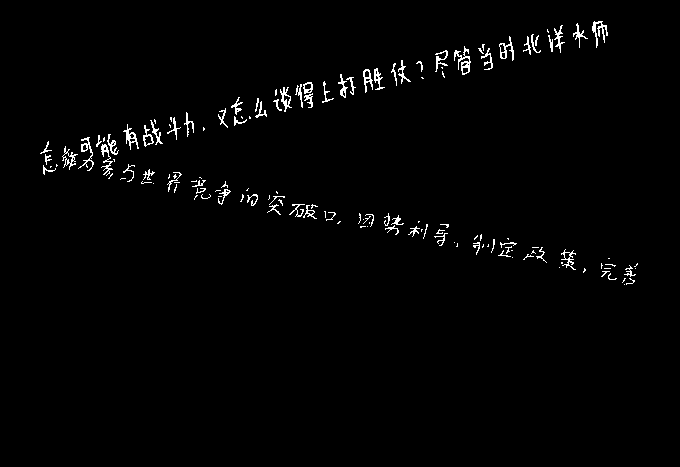 怎么可能有战斗力，又怎么谈得上打胜仗？尽管当时北洋水师
能力参与世界竞争的突破口，因势利导，制定政策，完善